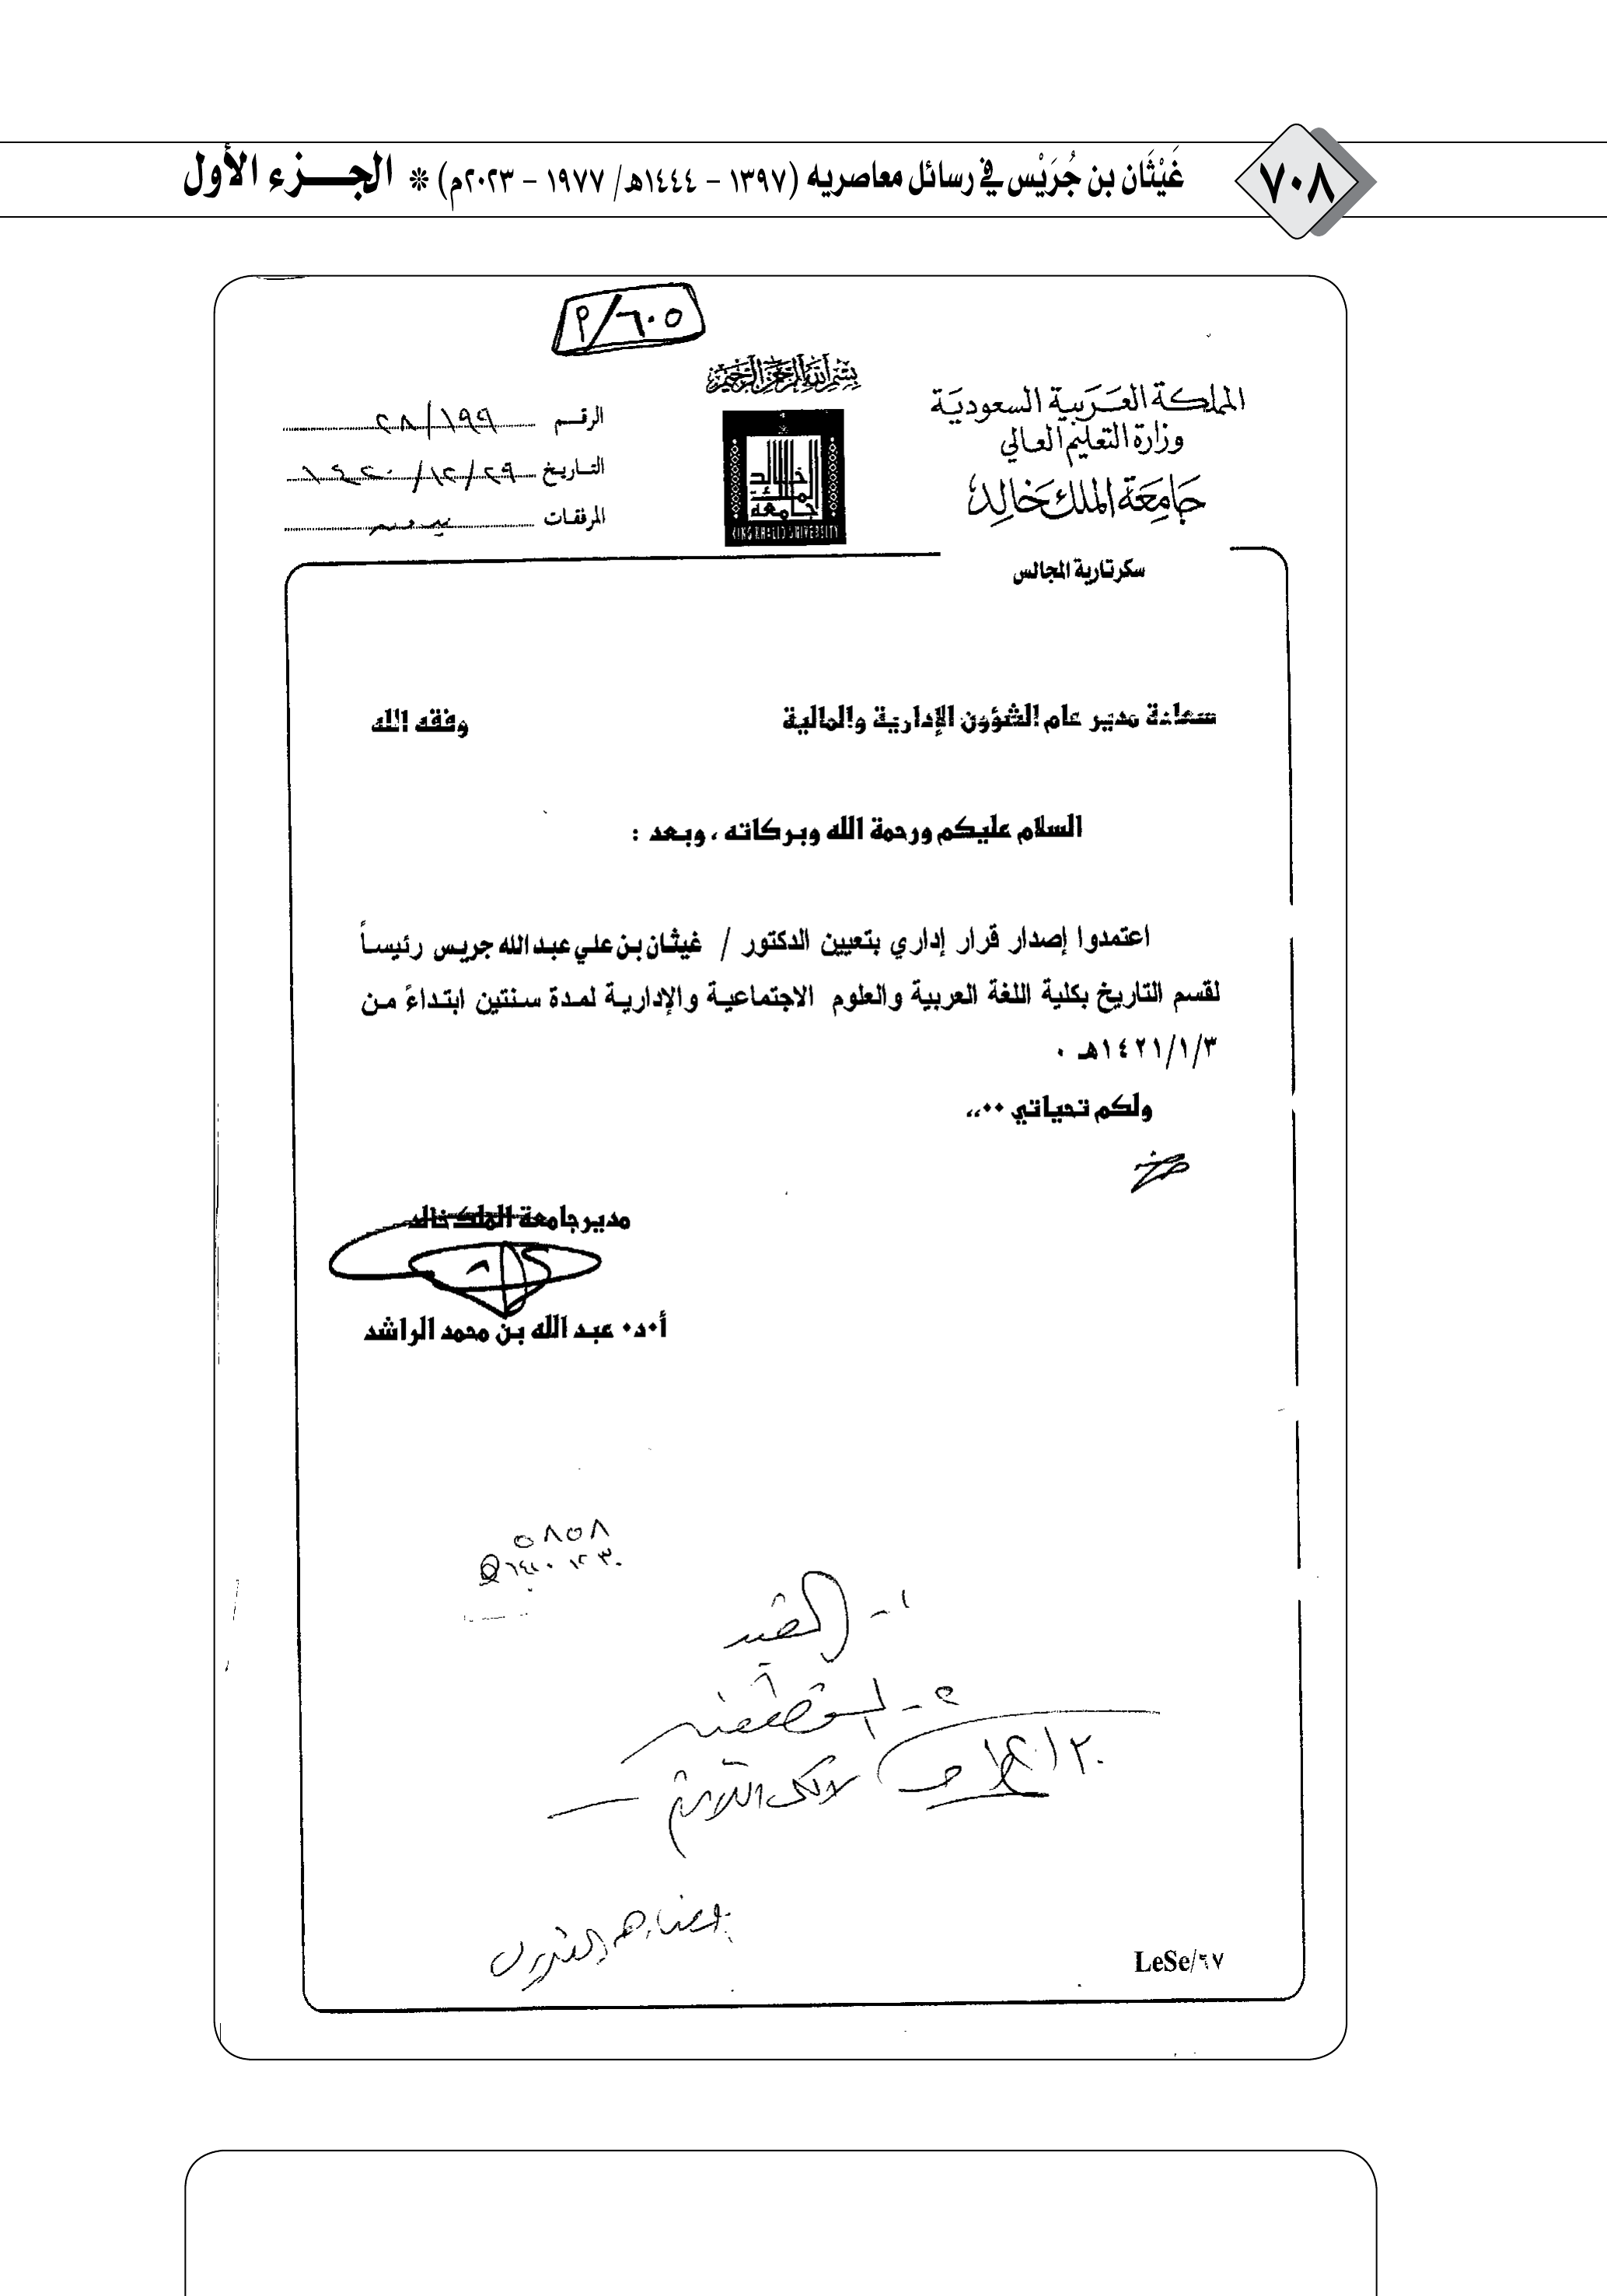 ٧٠٨
غَيْثَان بن جُرَيْس في رسائل معاصريه (١٣٩٧ - ١٤٤٤هـ/ ١٩٧٧ - ٢٠٢٣م) * الجـــزء الأول
٦٠٥/م
بسم الله الرحمن الرحيم
المملكة العربية السعودية
وزارة التعليم العالي
جامعة الملك خالد
سكرتارية المجالس
خالد
الملك
جامعة
KING KHALID UNIVERSITY
الرقــم ٢٨/١٩٩
التـاريـخ ١٤٢٠/١٢/٢٩
المرفقـات بدون
سعادة مدير عام الشؤون الإدارية والمالية وفقه الله
السلام عليكم ورحمة الله وبركاته ، وبعد :
اعتمدوا إصدار قرار إداري بتعيين الدكتور / غيثان بن علي عبد الله جريس رئيساً
لقسم التاريخ بكلية اللغة العربية والعلوم الاجتماعية والإدارية لمدة سنتين ابتداءً من
١٤٢١/١/٣هـ ٠
ولكم تحياتي ٠٠،،
مدير جامعة الملك خالد
أ٠د٠ عبد الله بن محمد الراشد
٥٨٥٨
١٤٢٠ ١٢ ٣٠
١- القيد
٢-
LeSe/٦٧